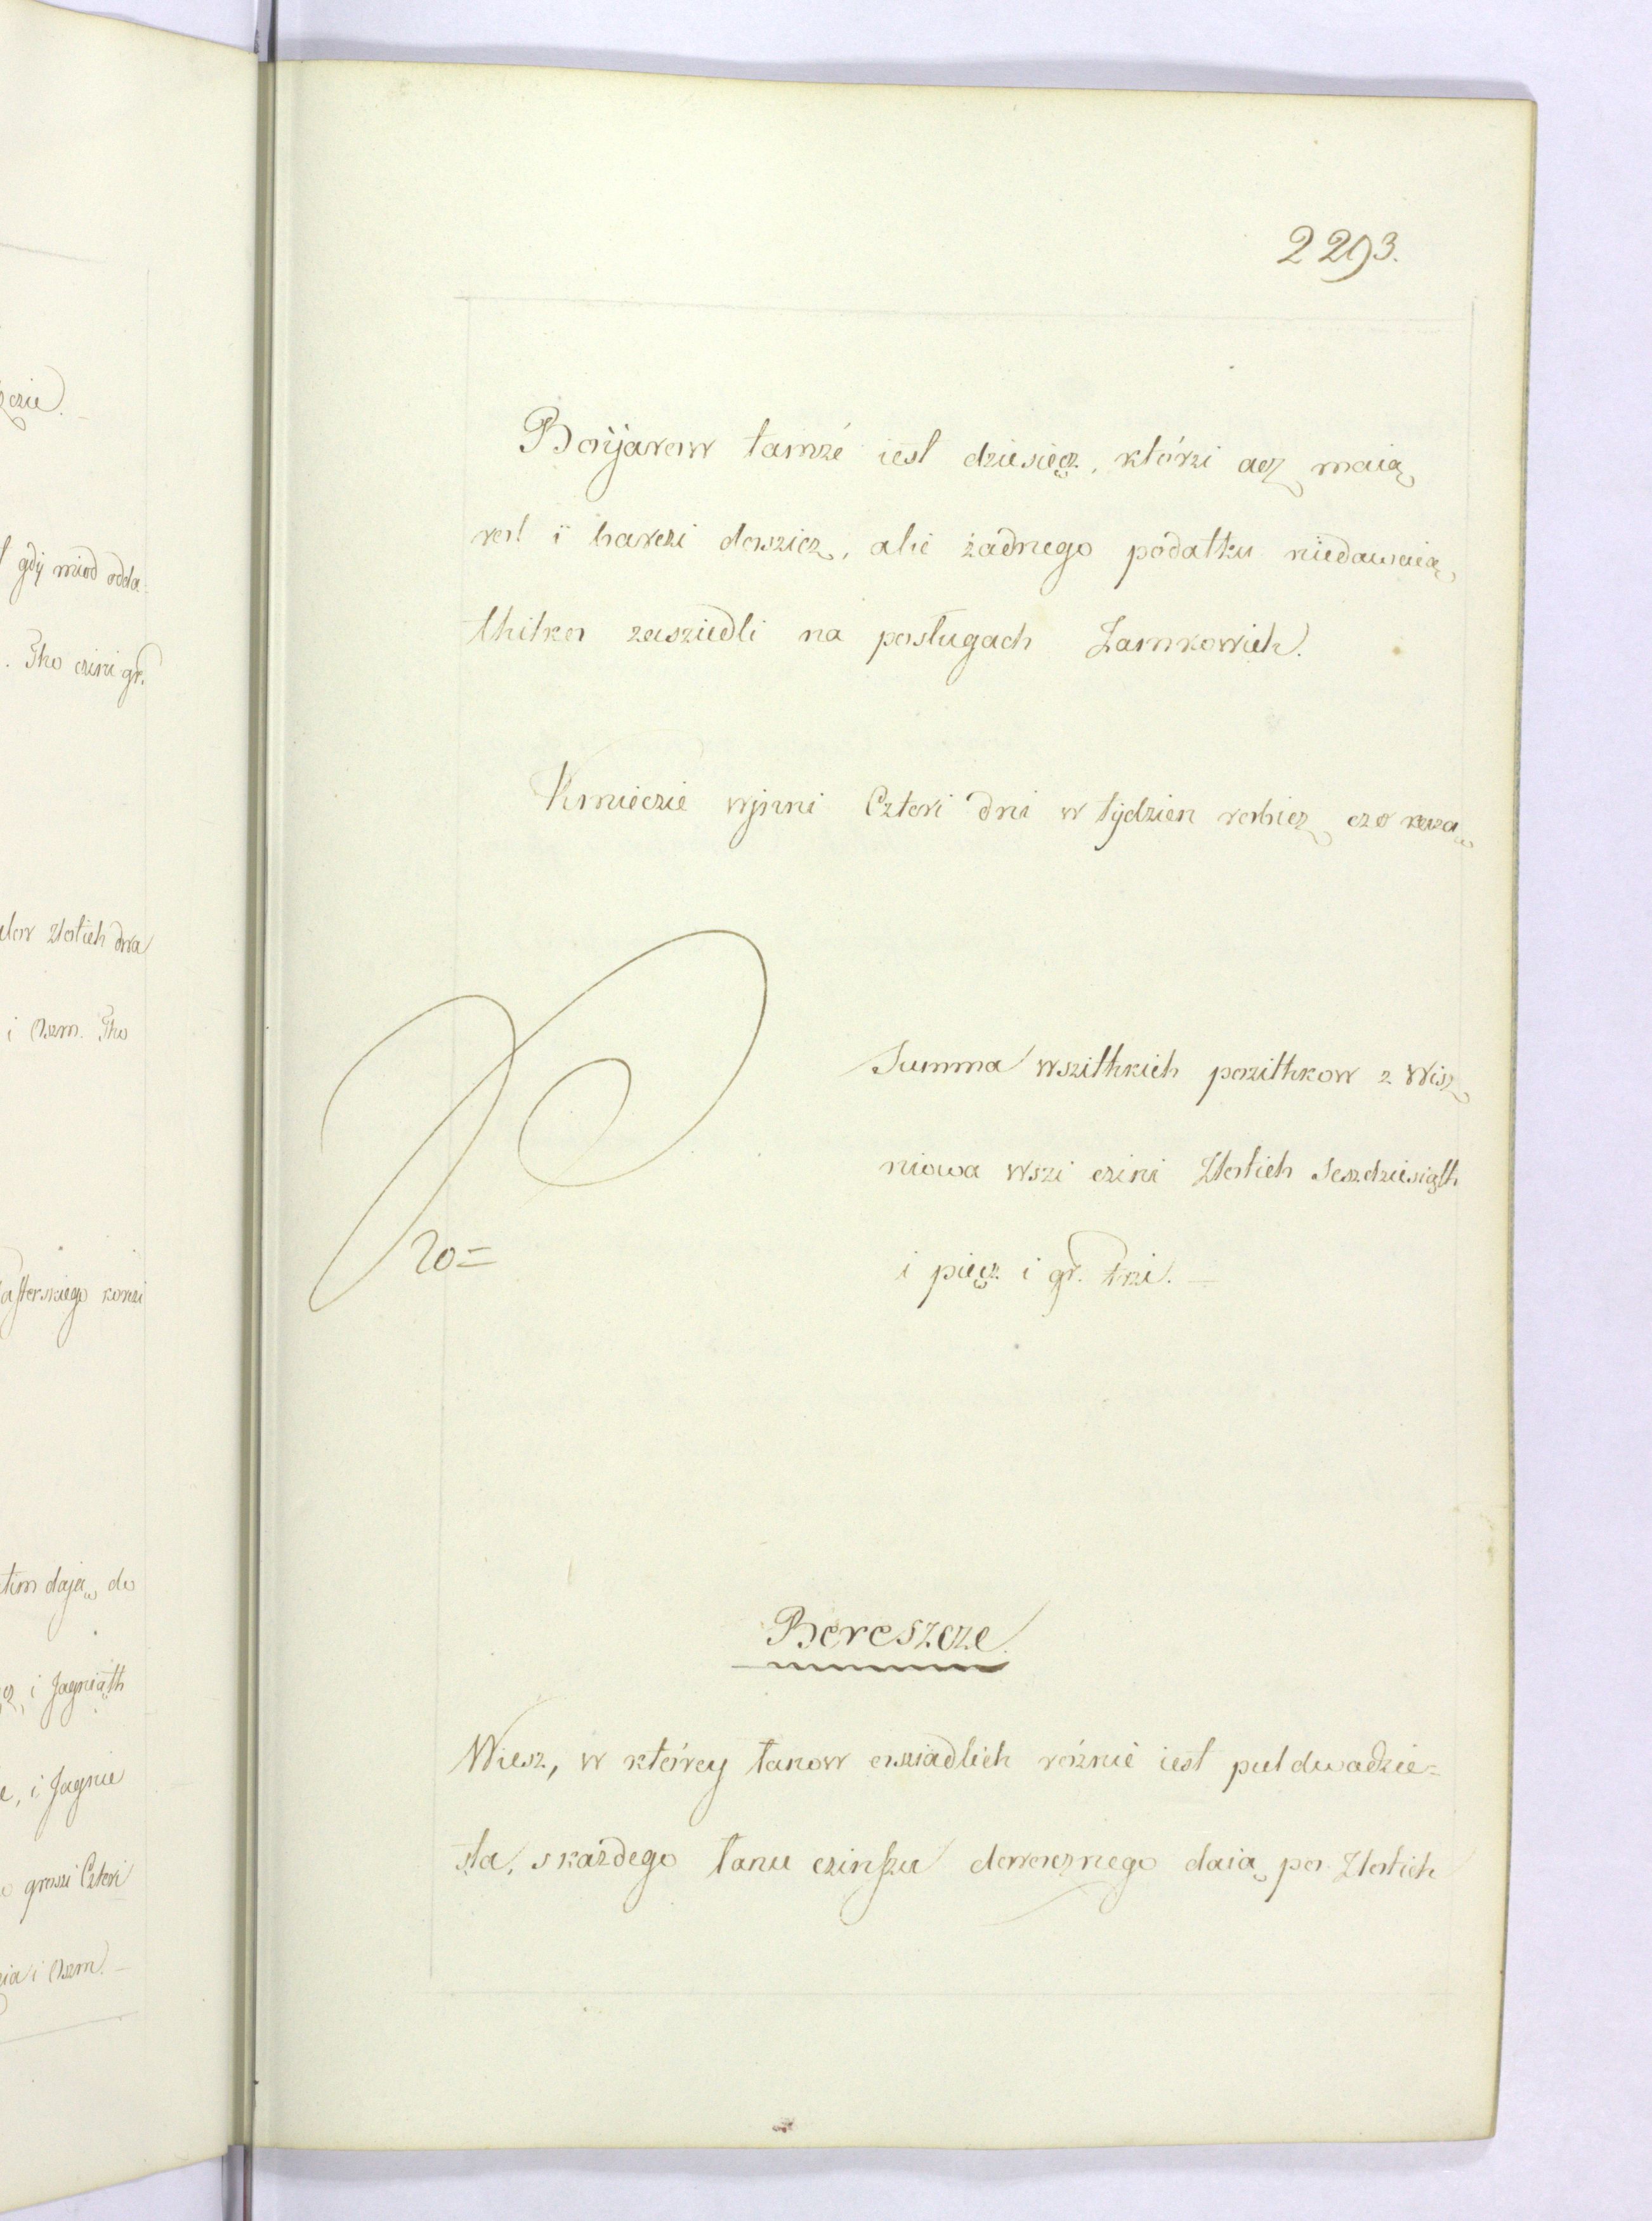 czie.
gdÿ miod odda-
Tho czini gr.
Złotich dwa
i Oszm. Tho
konczi
daja do
i Jagniąth
i Jagnie
groszi Czteri
i Oszm.
2293.
Boÿarow tamże iest dziesięcz, którzi acz maią
rol i barczi doszicz, alie żadnego podatku niedawaią,
thilko zasziedli na posługach Zamkowich.
Kmieczie wjnni Czteri dni w tÿdzien robicz czo każą
Summa wszithkich pozithkow z Wisz
niowa wszi czini Złotich Seszdziesiąth
i pięcz i gr. trzi.
20=
Bereszcze
Wiesz, w którey łanow osziadlich rożnie iest pułdwadzie=
sta, skażdego łanu czinszu dorocznego daią po Złotich